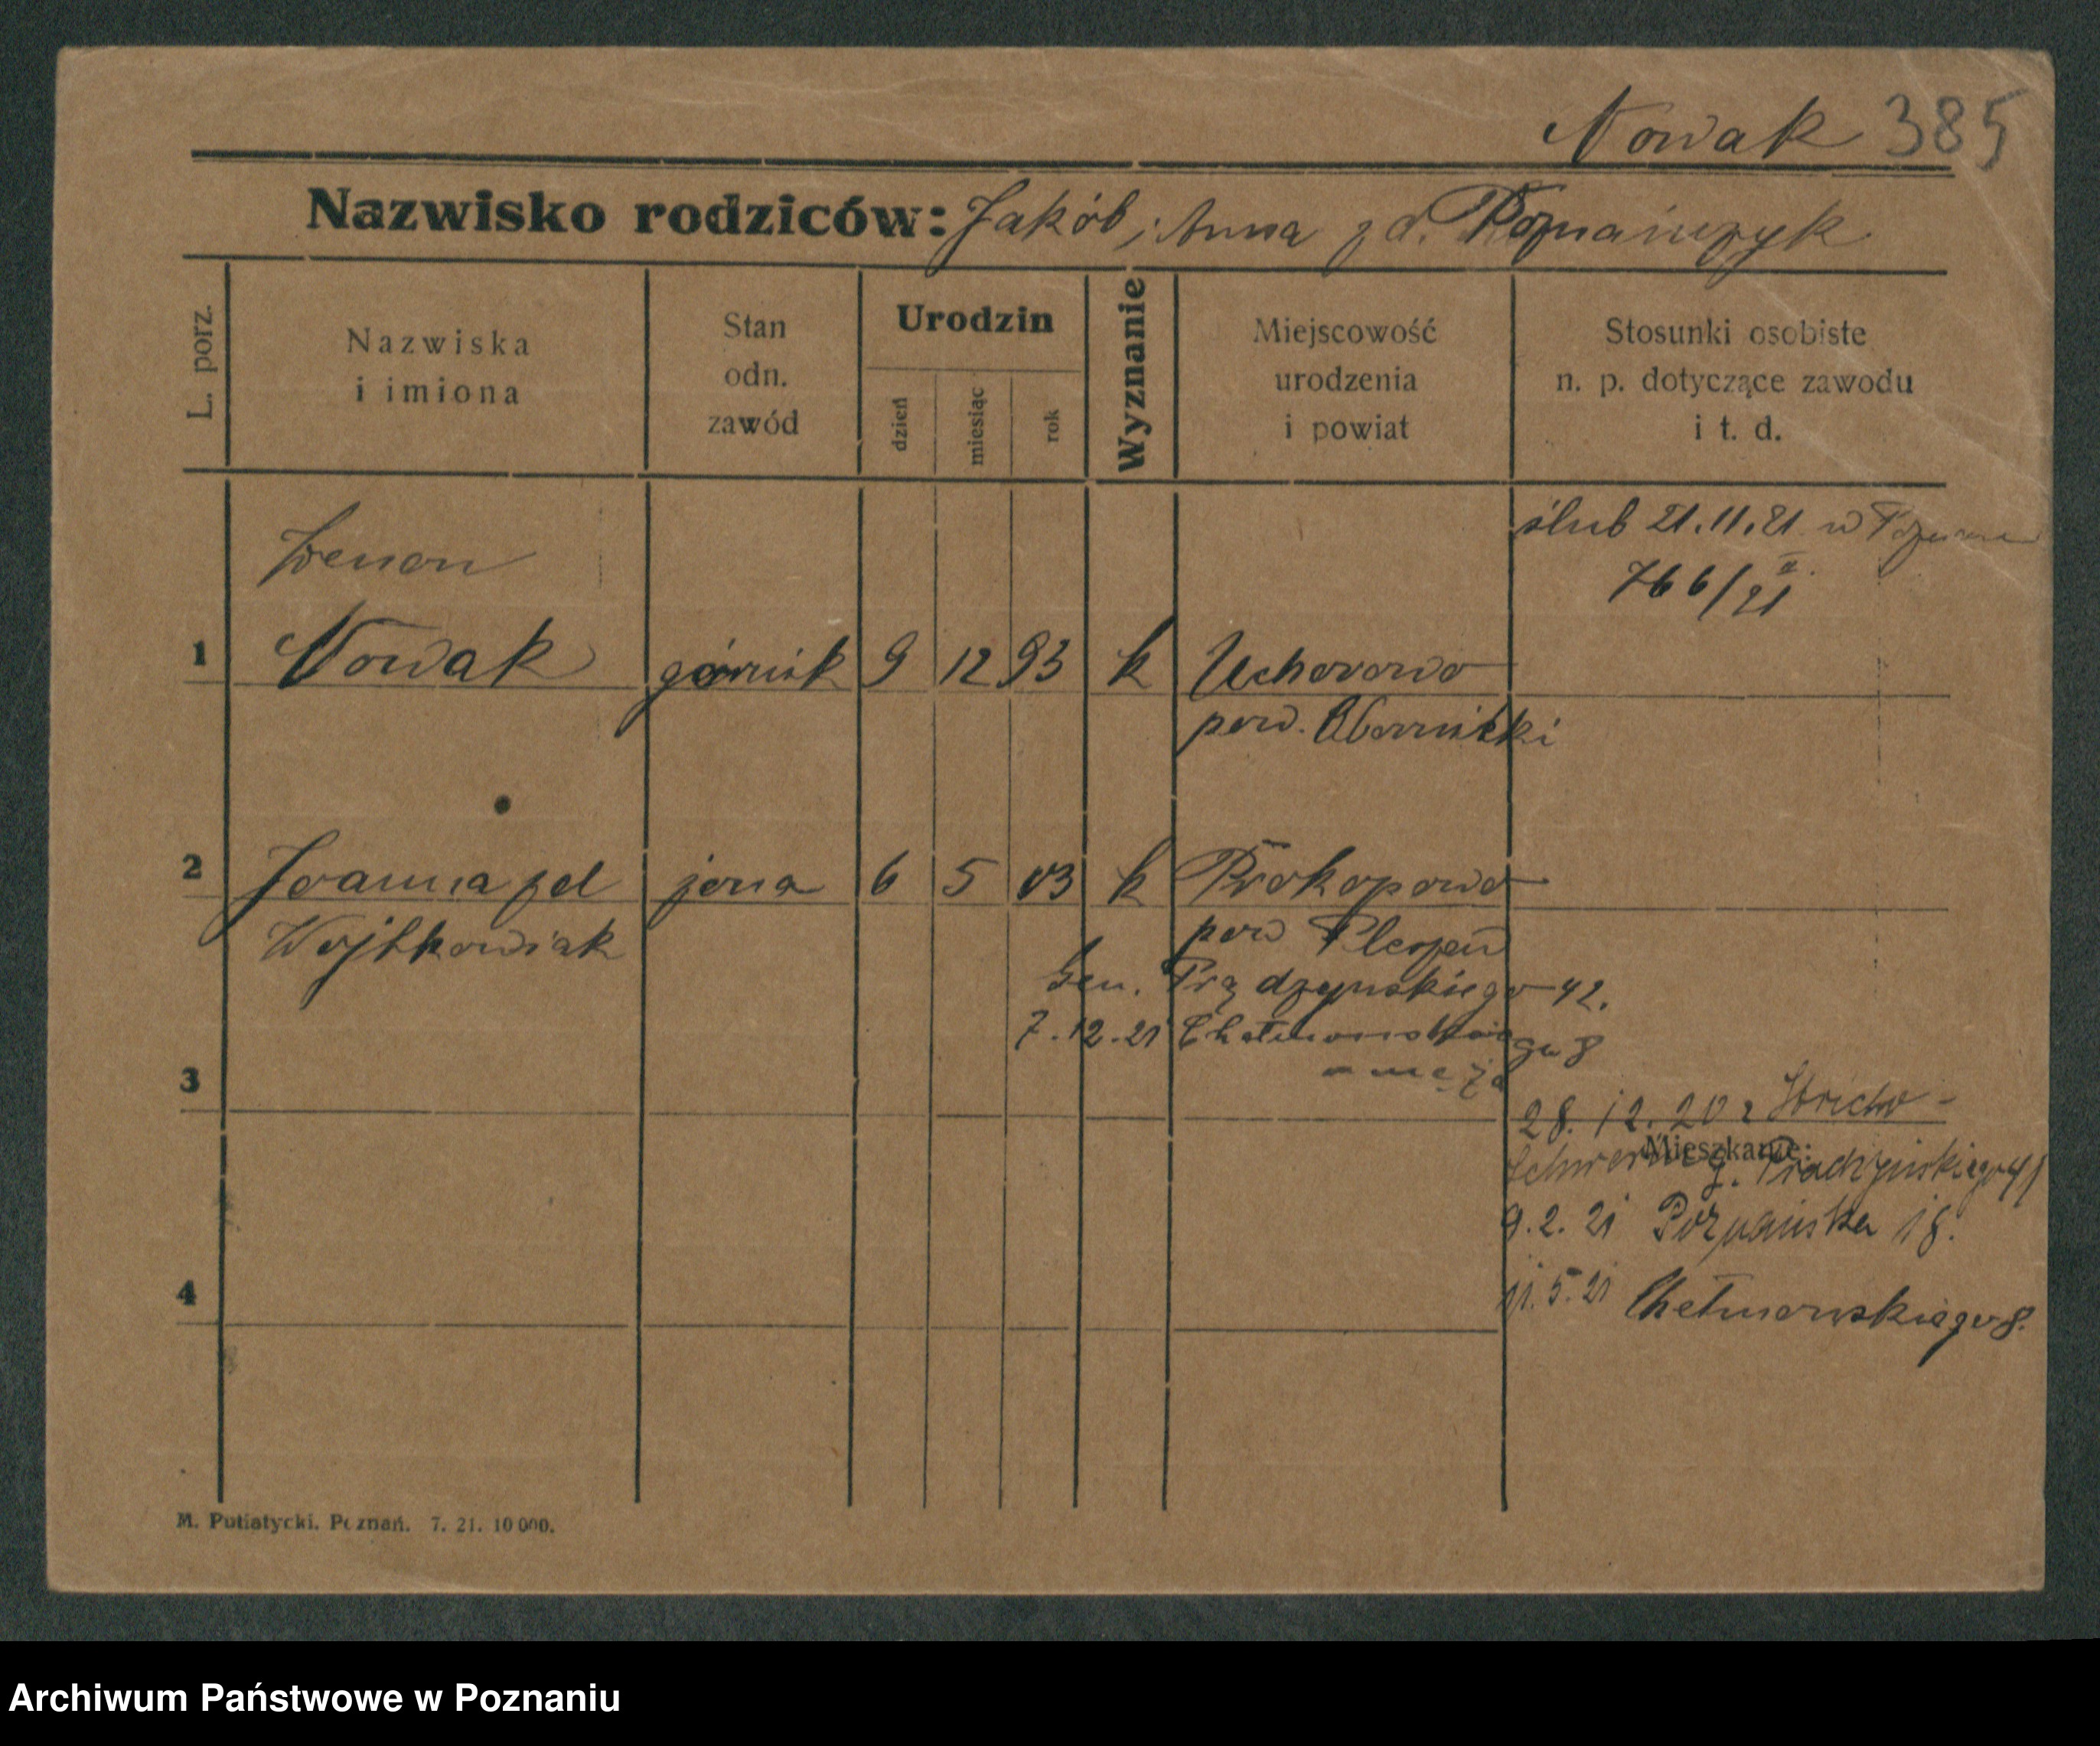 Nowak 385
Nazwisko rodziców: Jakób i Anna zd. Poznańczyk
L. porz.
Nazwiska
i imiona
Stan
odn.
zawód
Urodzin
dzień
miesiąc
rok
Wyznanie
Miejscowość
urodzenia
i powiat
Stosunki osobiste
n. p. dotyczące zawodu
i t. d.
ślub 21.11.21 w
766/21 II.
Zenon
1 Nowak górnik 9 12 93 k Uchorowo
pow. Obornicki
2 Joanna zd żona 6 5 03 k Prokopowo
Wojtkowiak pow Pleszew
Gen. Prądzynskiego 42.
7.12.21 Chełmonskiego 8
u męża
3
28.12.20 z
Mieszkanie:
g. Prądzyńskiego 41
9.2.21 Poznańska 18.
11.5.21 Chełmonskiego 8.
4
M. Putiatycki. Poznań. 7. 21. 10 000.
Archiwum Państwowe w Poznaniu